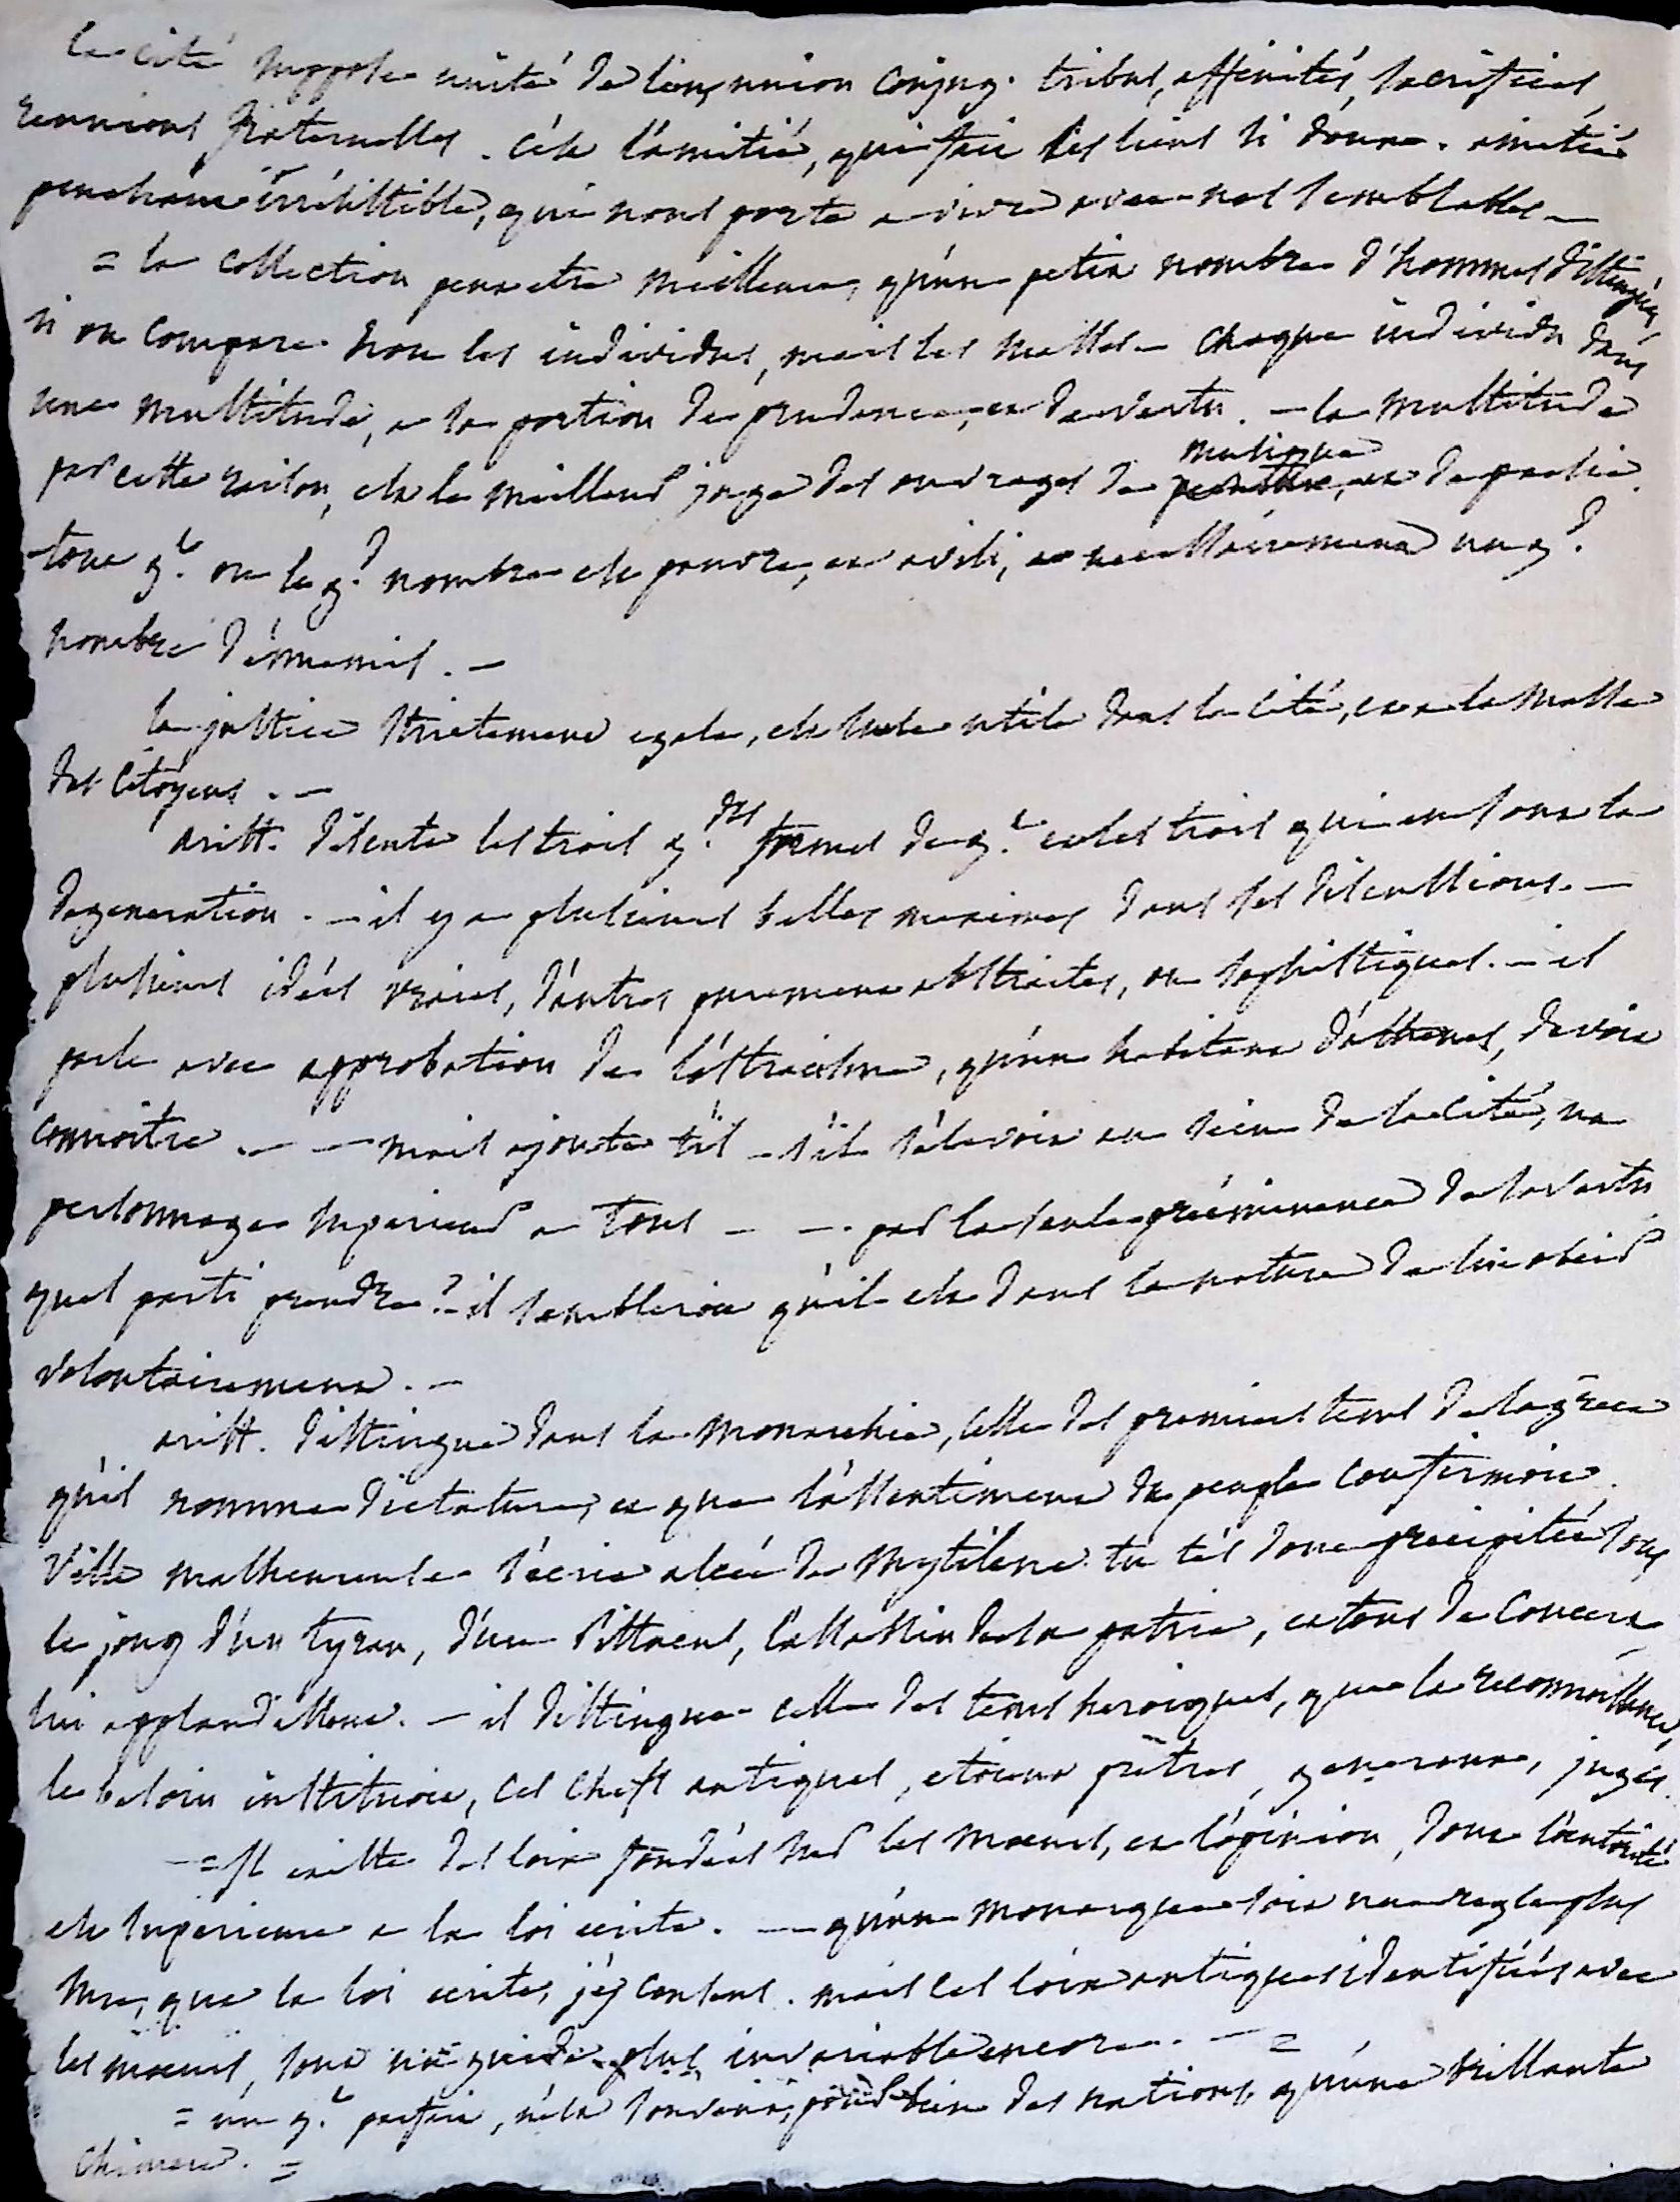 la cité suppose unité de lieu, union conjug. tribus, affinités, sacrifices,
reunions fraternelles. c'est l'amitié, qui fait ses liens si doux. amitié
penchant irrésistible, qui nous porte a vivre avec nos semblables —
= la collection peut etre meilleure, qu'un petit nombre d'hommes distingués
si on compare non les individus, mais les masses — chaque individu dans
une multitude, a sa portion de prudence, et de vertu. — la multitude
par cette raison, est le meilleur juge des ouvrages de musique, et de poesie.
tout gt. ou le gd. nombre est pauvre, et avili, a necessairement un gd.
nombre d'ennemis. —
la justice strictement egale, est seule utile dans la cité, et a la masse
des citoyens. —
arist. discute les trois gdes formes de gt. et les trois qui en sont la
degeneration. — il y a plusieurs belles maximes dans ses discussions. —
plusieurs idées vraies, d'autres purement abstraites, ou sophistiques. — il
parle avec approbation de l'ostracisme, qu'un habitant d'athenes, devoit
connoitre. — — mais ajoute t'il — s'il s'elevoit au sein de la cité, un
personnage superieur a tous — — par la seule préeminence de sa vertu
quel parti prendre? — il sembleroit qu'il est dans la nature de lui obeir
volontairement. —
arist. distingue dans la monarchie, celle des premiers tems de la grece
qu'il nomme dictature, et que l'assentiment du peuple confirmoit.
Ville malheureuse s'ecrie alcée de Mytilene tu t'es donc precipitée sous
le joug d'un tyran, d'un Pittacus, l'assassin de sa patrie, et tous de concert
lui applaudissent. — il distingue celle des tems heroiques, que la reconnoissance,
le besoin instituoit, ces chefs antiques, etoient prêtres, generaux, juges.
— = Il existe des loix fondées sur les moeurs, et l'opinion, dont l'autorité
est superieure a la loi ecrite. — qu'un monarque soit une regle plus
sure, que la loi ecrite, j'y consens. mais ces loix antiques identifiées avec
les moeurs, sont un guide plus invariable encore. — =
= un gt. parfait, n'est souvent, pour bien des nations, qu'une brillante
chimere. =